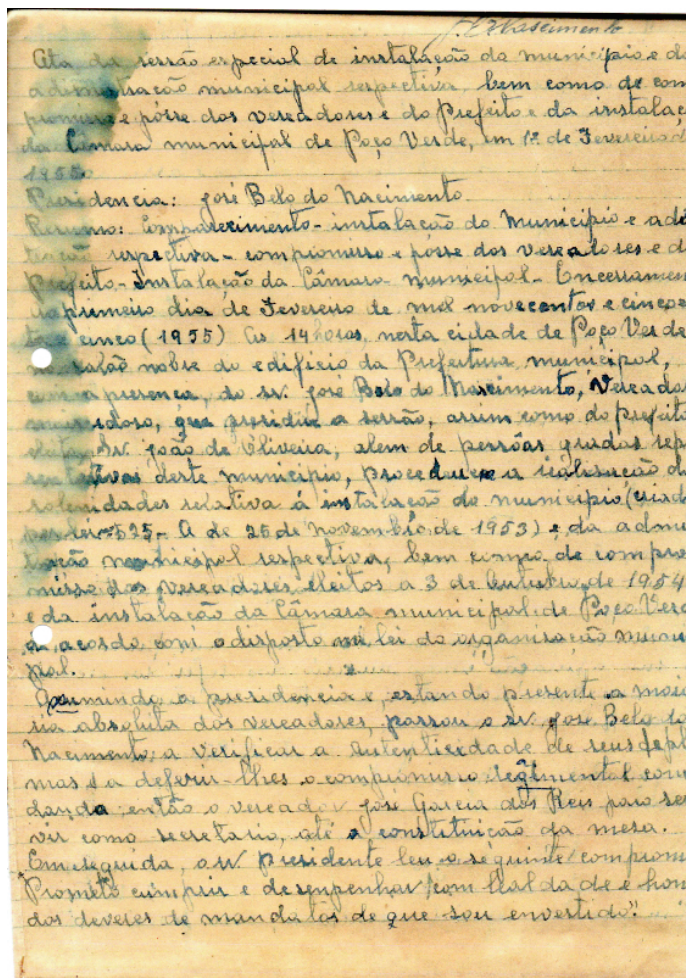 J. B Nascimento
Ata da sessão especial de instalação do municipio e da
adimistração municipal respectiva, bem como de com
promisso e pósse dos vereadores e do Prefeito e da instalaç
da Câmara municipal de Poço Verde, em 1º de Fevereiro d
1955.
Presidencia: José Belo do Nacimento
Resumo: Comparecimento - instalação do Municipio e adi
tração respectiva - compromisso e pósse dos vereadores e d
Prefeito - Instalação da Câmara municipal - Encerramen
primeiro dia de Fevereiro de mil novecentos e cincoe
ta e cinco (1955) às 14 horas, nesta cidade de Poço Verde
no salão nobre do edificio da Prefeitura municipal,
com a presença, do sr. José Belo do Nascimento, Vereador
mais idoso, que presidiu a sessão, assim como do prefeito
eleito, Sr. João de Oliveira, alem de pessôas gradas rep
sentativas deste municipio, procedeu-se a realisação d
solenidades relativa á instalação do municipio (criad
por lei nº 525 - A de 25 de novembro de 1953) e da admis
tração municipal respectiva, bem como de compro
misso dos vereadores eleitos a 3 de Outubro de 1954
e da instalação da Câmara municipal de Poço Verd
de acordo com o disposto na lei da organisação munici
pal.
Assumindo a presidencia e, estando presente a maio
ria absoluta dos vereadores, passou o sr. José Belo do
Nacimento, a verificar a autenticidade de seus depl
mas e a deferir-lhes o compromisso regimental conv
danda então o vereador José Garcia dos Reis para ser
vir como secretario, até a constituição da mesa.
Em seguida, o sr Presidente leu o seguinte compromi
Prometo cumprir e desempenhar com lealdade e hon
dos deveres de mandatos de que sou envestido".